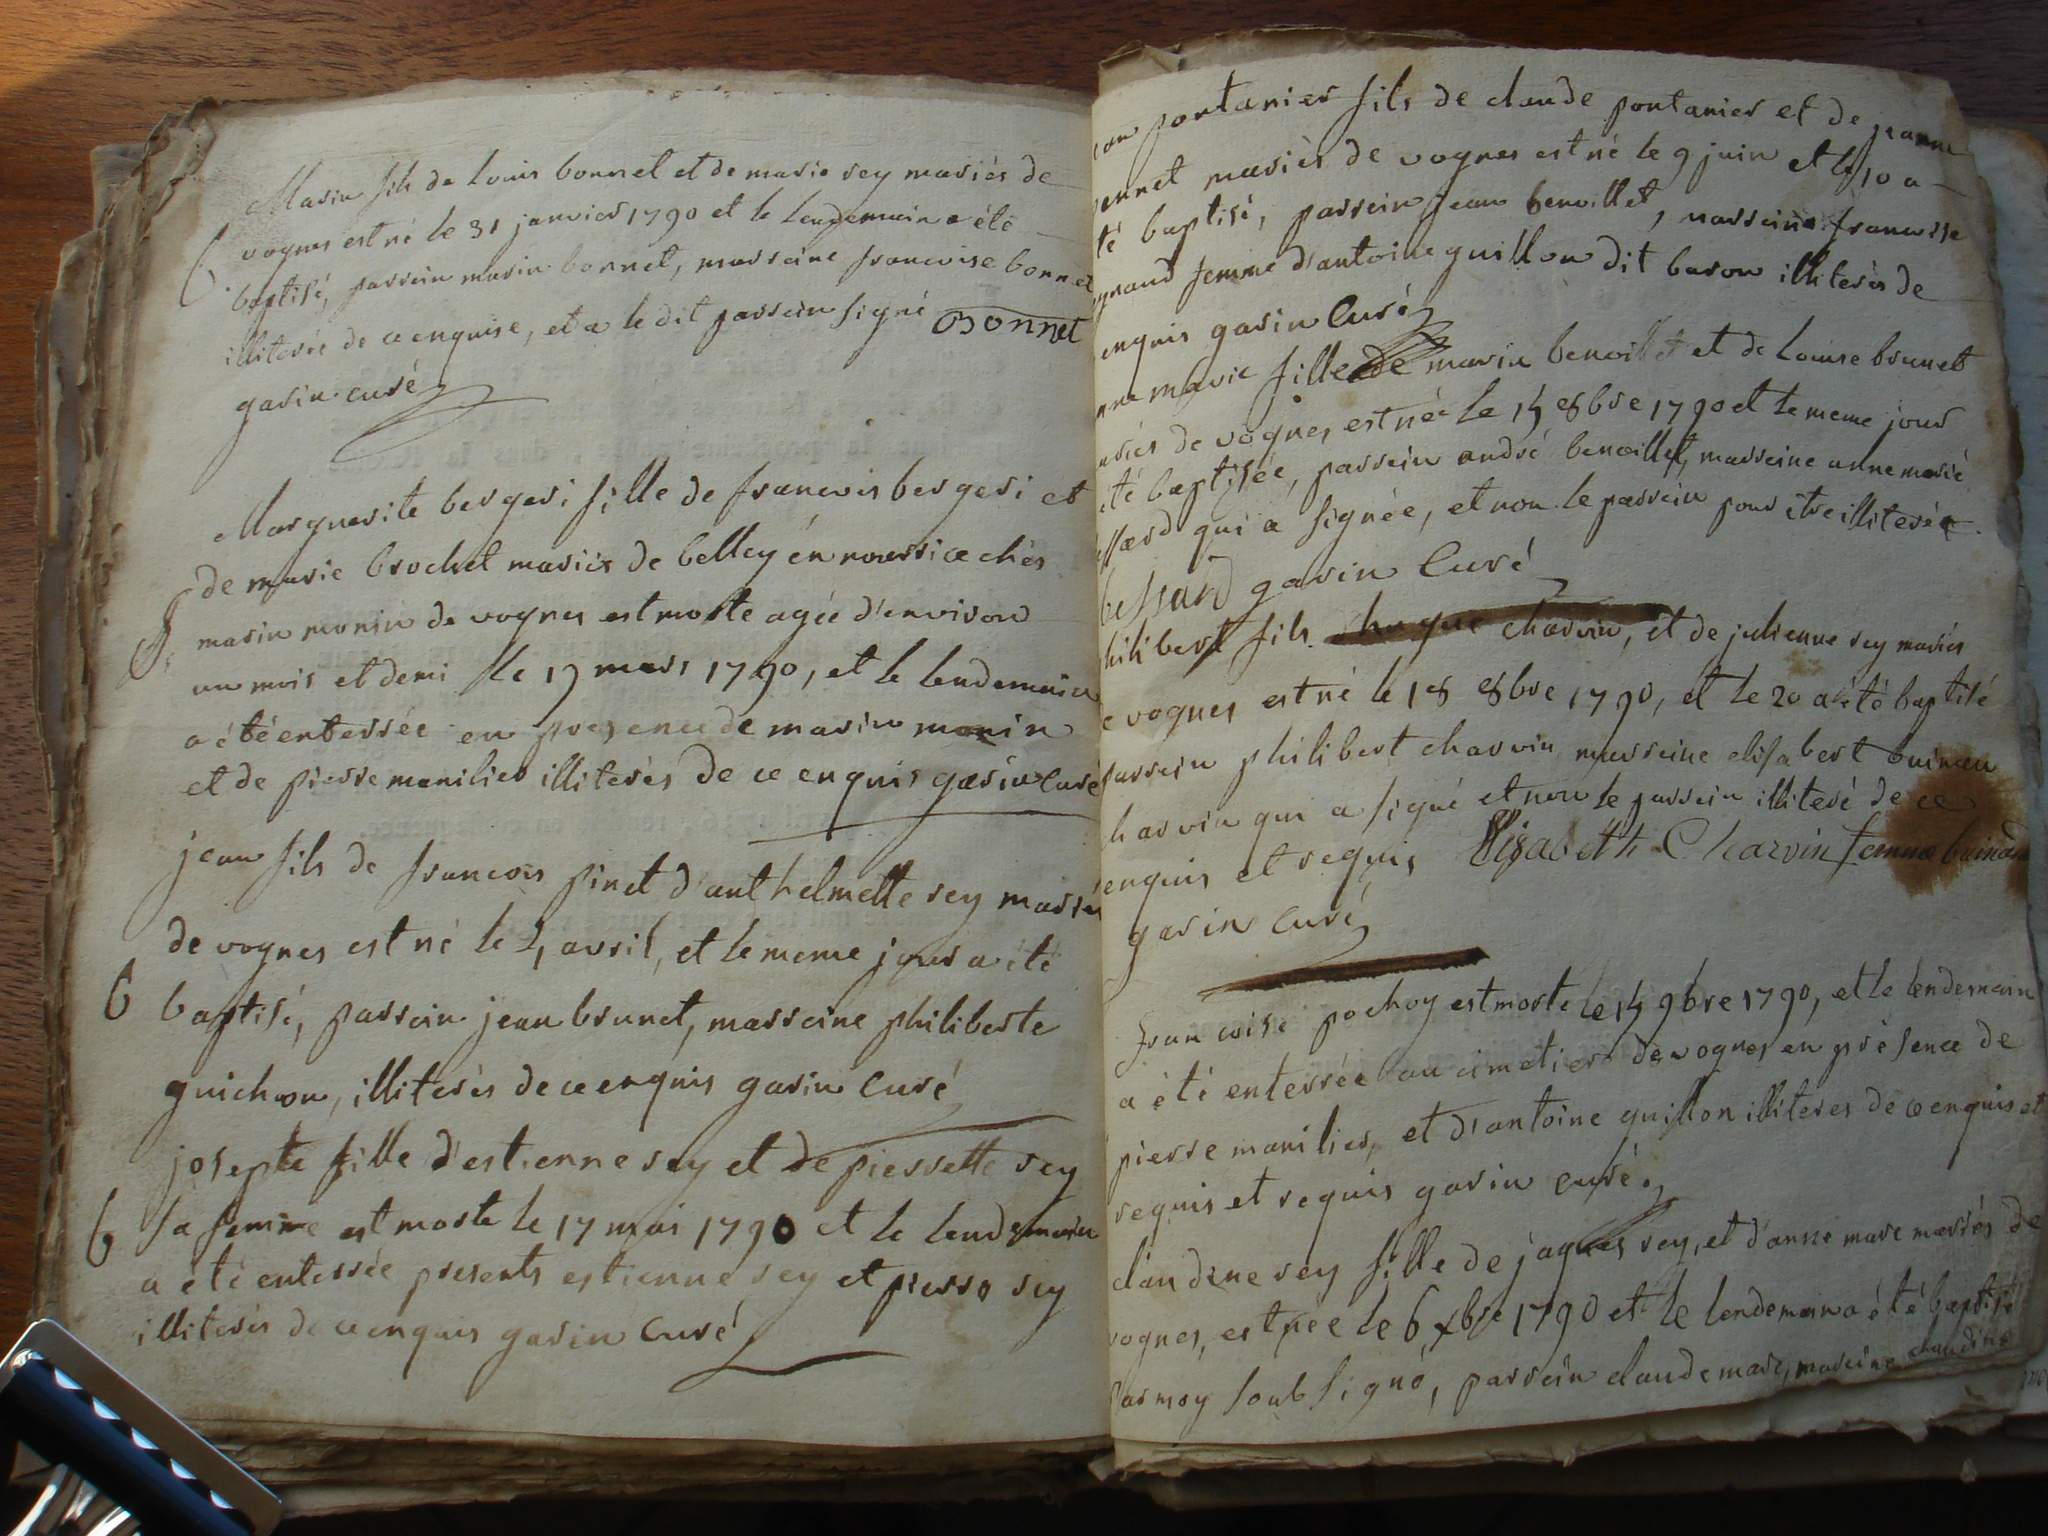 Marin fils de Louis bonnet et de marie rey mariés de
vognes est né le 31 janvier 1790 et le lendemain a été
baptisé, parrein marin bonnet, marreine francoise bonnet
illiterée de ce enquise, et a le dit parrein signé Bonnet
garin curé
Marguerite bergeri fille de francois bergeri et
de marie brochet mariés de belley en nourrice chés
marin monin de vognes est morte agée d'environ
un mois et demi le 19 mars 1790, et le lendemain
a été enterrée en presence de marin monin
et de pierre manilier illiterés de ce enquis garin Curé
jean fils de francois pinet d'anthelmette rey mariés
de vognes est né le 4 avril, et le meme jour a été
6 baptisé, parrein jean brunet, marreine philiberte
guichon, illiterés de ce enquis garin Curé
josepte fille d'estienne rey et de pierrette rey
6 sa femme est morte le 17 mai 1790 et le lendemain
a été enterrée presents estienne rey et pierre rey
illiterés de ce enquis garin Curé
pontanier fils de claude pontanier et de jeanne
mariés de vognes est né le 9 juin et le 10 a
té baptisé, parrein jean benoillet, marreine francoise
femme d'antoine guillon dit baron illiterés de
enquis garin Curé
marie fille de marin benoillet et de Louise brunet
de vognes est née le 14 8bre 1790 et le meme jour
été baptisée, parrein andré benoillet, marreine anne marie
qui a signée, et non le parrein pour etre illiteré
bessard garin Curé
hilibert fils charvin, et de julienne rey mariés
e vognes est né le 18 8bre 1790, et le 20 a été baptisé
parrein philibert charvin marreine elisabert buinan
harvin qui a signé et non le parrein illiteré de ce
enquis et requis Elisabeth Charvin femme buinan
garin Curé
francoise pochoy est morte le 14 9bre 1790, et le lendemain
a été enterrée au cimetier de vognes en présence de
pierre manilier, et d'antoine guillon illiteres de ce enquis et
requis et requis garin curé
claudine rey fille de jaques rey, et d'anne mare mariés de
vognes, est née le 6 xbre 1790 et le lendemain a été baptisé
Par moy soubsigné, parrein claude mare, mareine claudine